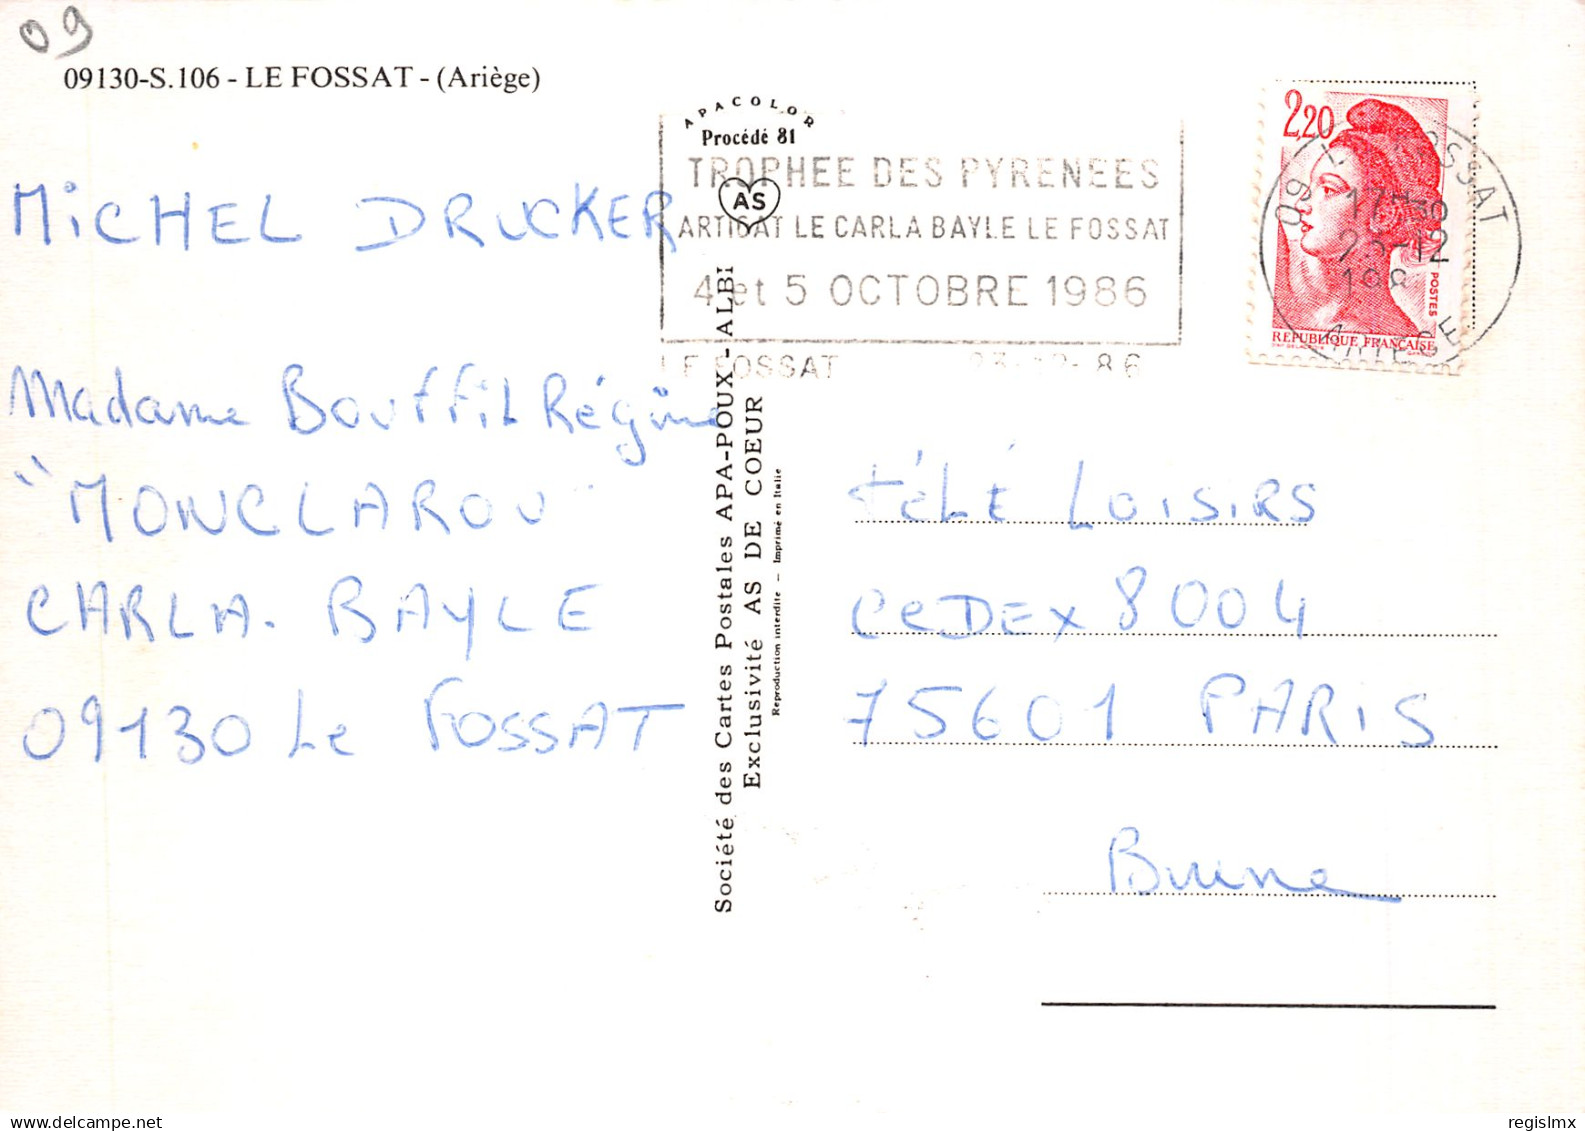 09
09130-S.106 - LE FOSSAT - (Ariège)
APACOLOR
Procédé 81
AS
TROPHEE DES PYRENEES
ARTIGAT LE CARLA BAYLE LE FOSSAT
4 et 5 OCTOBRE 1986
LE FOSSAT 23-12-86
2,20
POSTES
REPUBLIQUE FRANÇAISE
09 LE FOSSAT
23-12
ARIEGE
MICHEL DRUCKER
Madame Bouffil Régine
"MONCLAROU"
CARLA-BAYLE
09130 Le FOSSAT
Société des Cartes Postales APA-POUX - ALBI
Exclusivité AS DE COEUR
Reproduction interdite — Imprimé en Italie
téLé LOISIRS
CeDEx 8004
75601 PARIS
Brune
regislmx